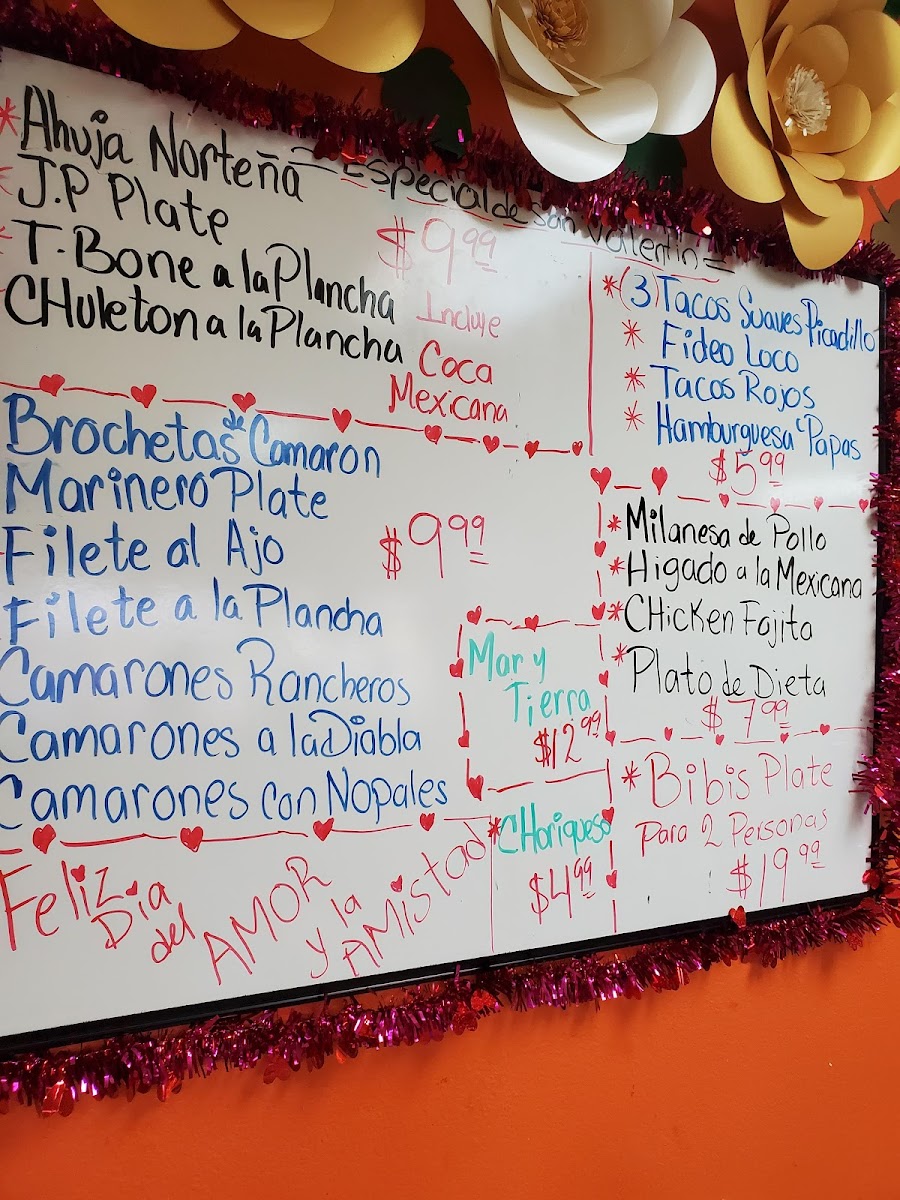 = Especial de San Valentin =
* Ahuja Norteña
* J.P Plate
* T. Bone a la Plancha
* CHuleton a la Plancha
$9.99
Incluye
Coca
Mexicana
Brochetas de Camaron
Marinero Plate
Filete al Ajo
Filete a la Plancha
Camarones Rancheros
Camarones a la Diabla
Camarones con Nopales
$9.99
Mar y
Tierra
$12.99
* CHoriqueso
$4.99
* (3) Tacos Suaves Picadillo
* Fideo Loco
* Tacos Rojos
* Hamburguesa c Papas
$5.99
* Milanesa de Pollo
* Higado a la Mexicana
* CHicken Fajita
* Plato de Dieta
$7.99
* Bibis Plate
Para 2 Personas
$19.99
Feliz
Dia
del
AMOR
y la
AMistad